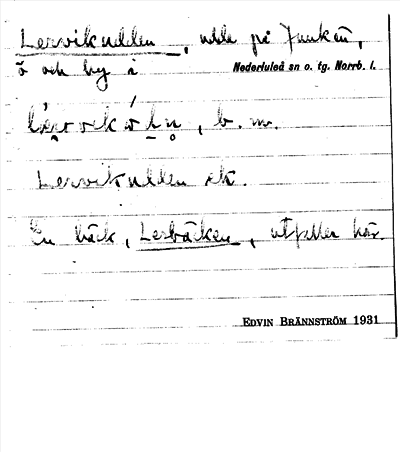 Lervikudden, udde på Junkön,
ö och by i Nederluleå sn o. tg. Norrb. l.
b. m.
Lervikudden ek.
En bäck, Lerbäcken, utfaller här.
EDVIN BRÄNNSTRÖM 1931